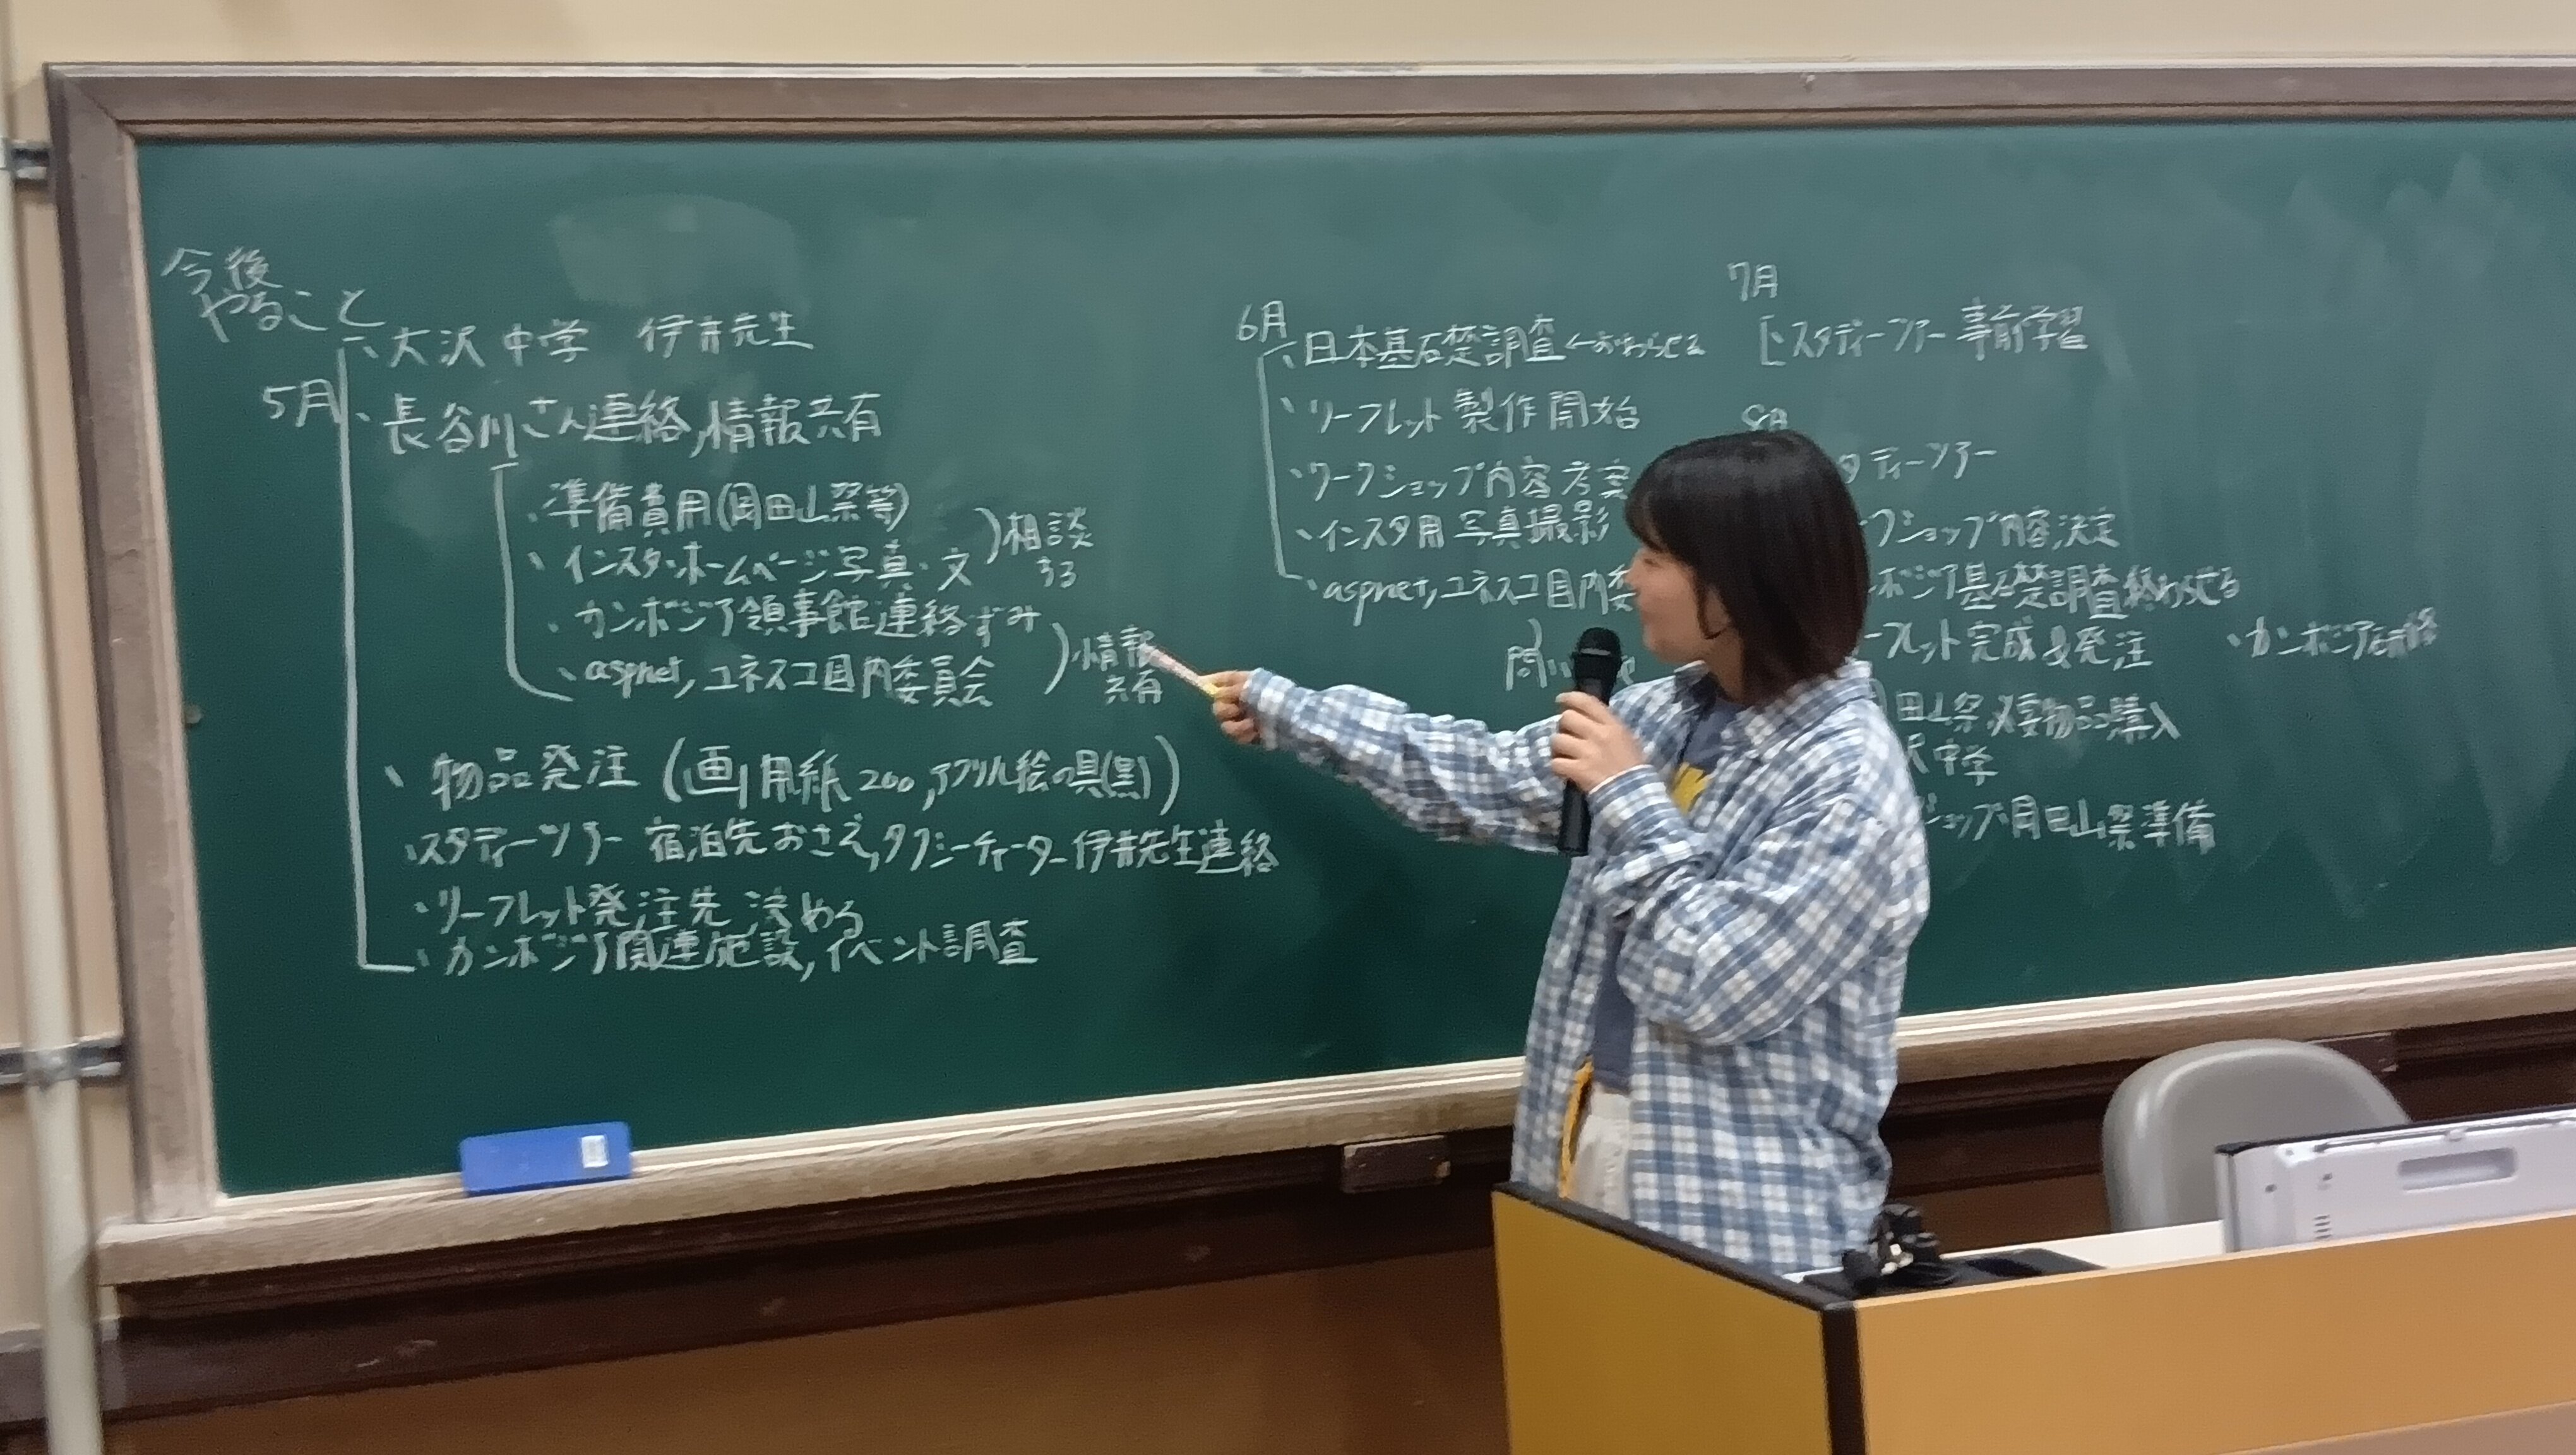 今後
やること
5月
、大沢中学 伊井先生
、長谷川さん連絡,情報共有
・準備費用(岡田山祭等)
・インスタ・ホームページ写真・文
)相談
する
・カンボジア領事館連絡ずみ
・aspnet,ユネスコ国内委員会
)情報
共有
・物品発注(画用紙200,アクリル絵の具(黒))
・スタディーツアー 宿泊先おさえ,タクシーチャーター伊井先生連絡
・リーフレット発注先決める
・カンボジア関連施設,イベント調査
6月
・日本基礎調査←おわらせる
・リーフレット製作開始
・ワークショップ内容考案
・インスタ用写真撮影
・aspnet,ユネスコ国内委
7月
・スタディーツアー事前学習
8月
タディーツアー
クショップ内容決定
ボジア基礎調査終わらせる
フレット完成&発注
・カンボジア研修
田山祭必要物品購入
中学
ショップ・岡田山祭準備